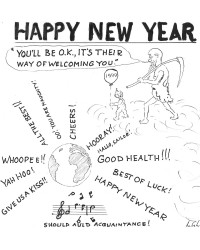 HAPPY NEW YEAR
"YOU'LL BE O.K., IT'S THEIR
WAY OF WELCOMING YOU."
ALL THE BEST!!
OO, YOU ARE NAUGHTY!
CHEERS!
HOORAY!
HALLO, SAILOR!
WHOOPEE!!
GOOD HEALTH!!!
YAH HOO!
BEST OF LUCK!
GIVE US A KISS!!
HAPPY NEW YEAR
SHOULD AULD ACQUAINTANCE!